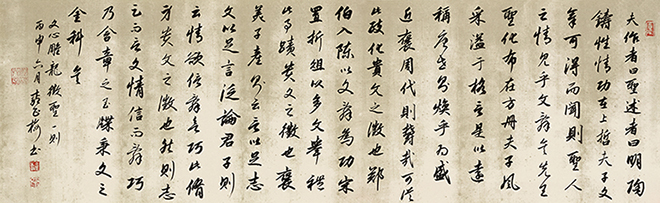 夫作者曰聖述者曰明陶
鑄性情功在上哲夫子文
章可得而聞則聖人
之情見乎文辭矣先王
聖化布在方冊夫子風
采溢于格言是以遠
稱唐世則煥乎為盛
近褒周代則鬱哉可從
此政化貴文之徵也鄭
伯入陳以文辭為功宋
置折俎以多文舉禮
此事蹟貴文之徵也褒
美子產則云言以足志
文以足言泛論君子則
云情欲信辭欲巧此脩
身貴文之徵也然則志
足而言文情信而辭巧
乃含章之玉牒秉文之
金科矣
文心雕龍徵聖一則
丙申六月書